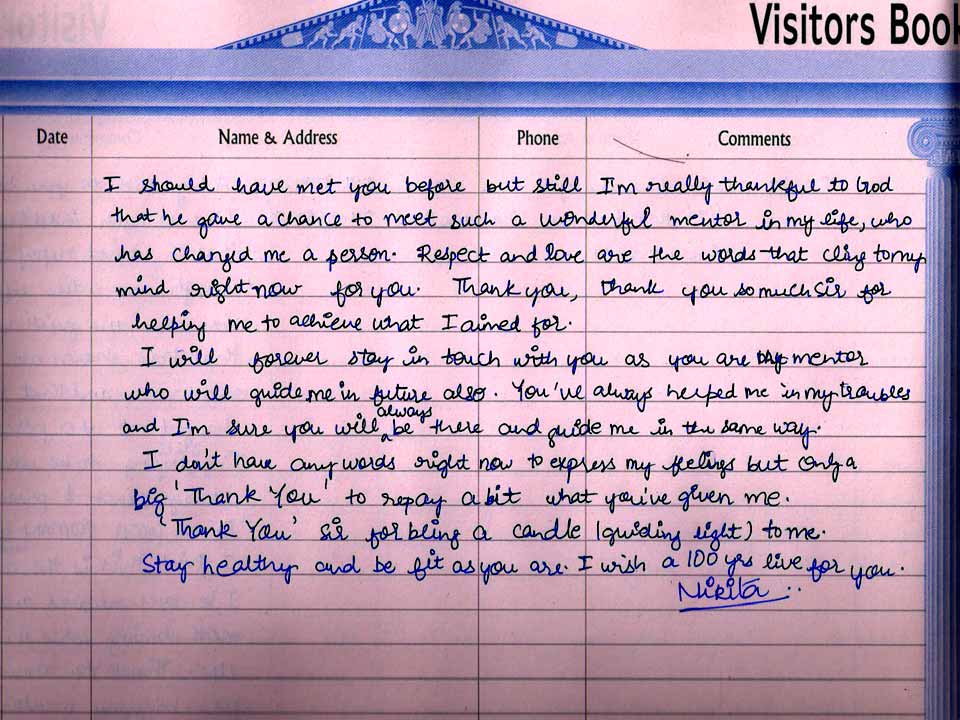 Visitors Book
Date Name & Address Phone Comments
I should have met you before but still I'm really thankful to God
that he gave a chance to meet such a wonderful mentor in my life, who
has changed me a person. Respect and love are the words that cling to my
mind right now for you. Thank you, thank you so much sir for
helping me to achieve what I aimed for.
I will forever stay in touch with you as you are the mentor
who will guide me in future also. You've always helped me in my troubles
and I'm sure you will always be there and guide me in the same way.
I don't have any words right now to express my feelings but only a
big 'Thank You' to repay a bit what you've given me.
'Thank You' sir for being a candle (guiding light) to me.
Stay healthy and be fit as you are. I wish a 100 yrs live for you.
Nikita